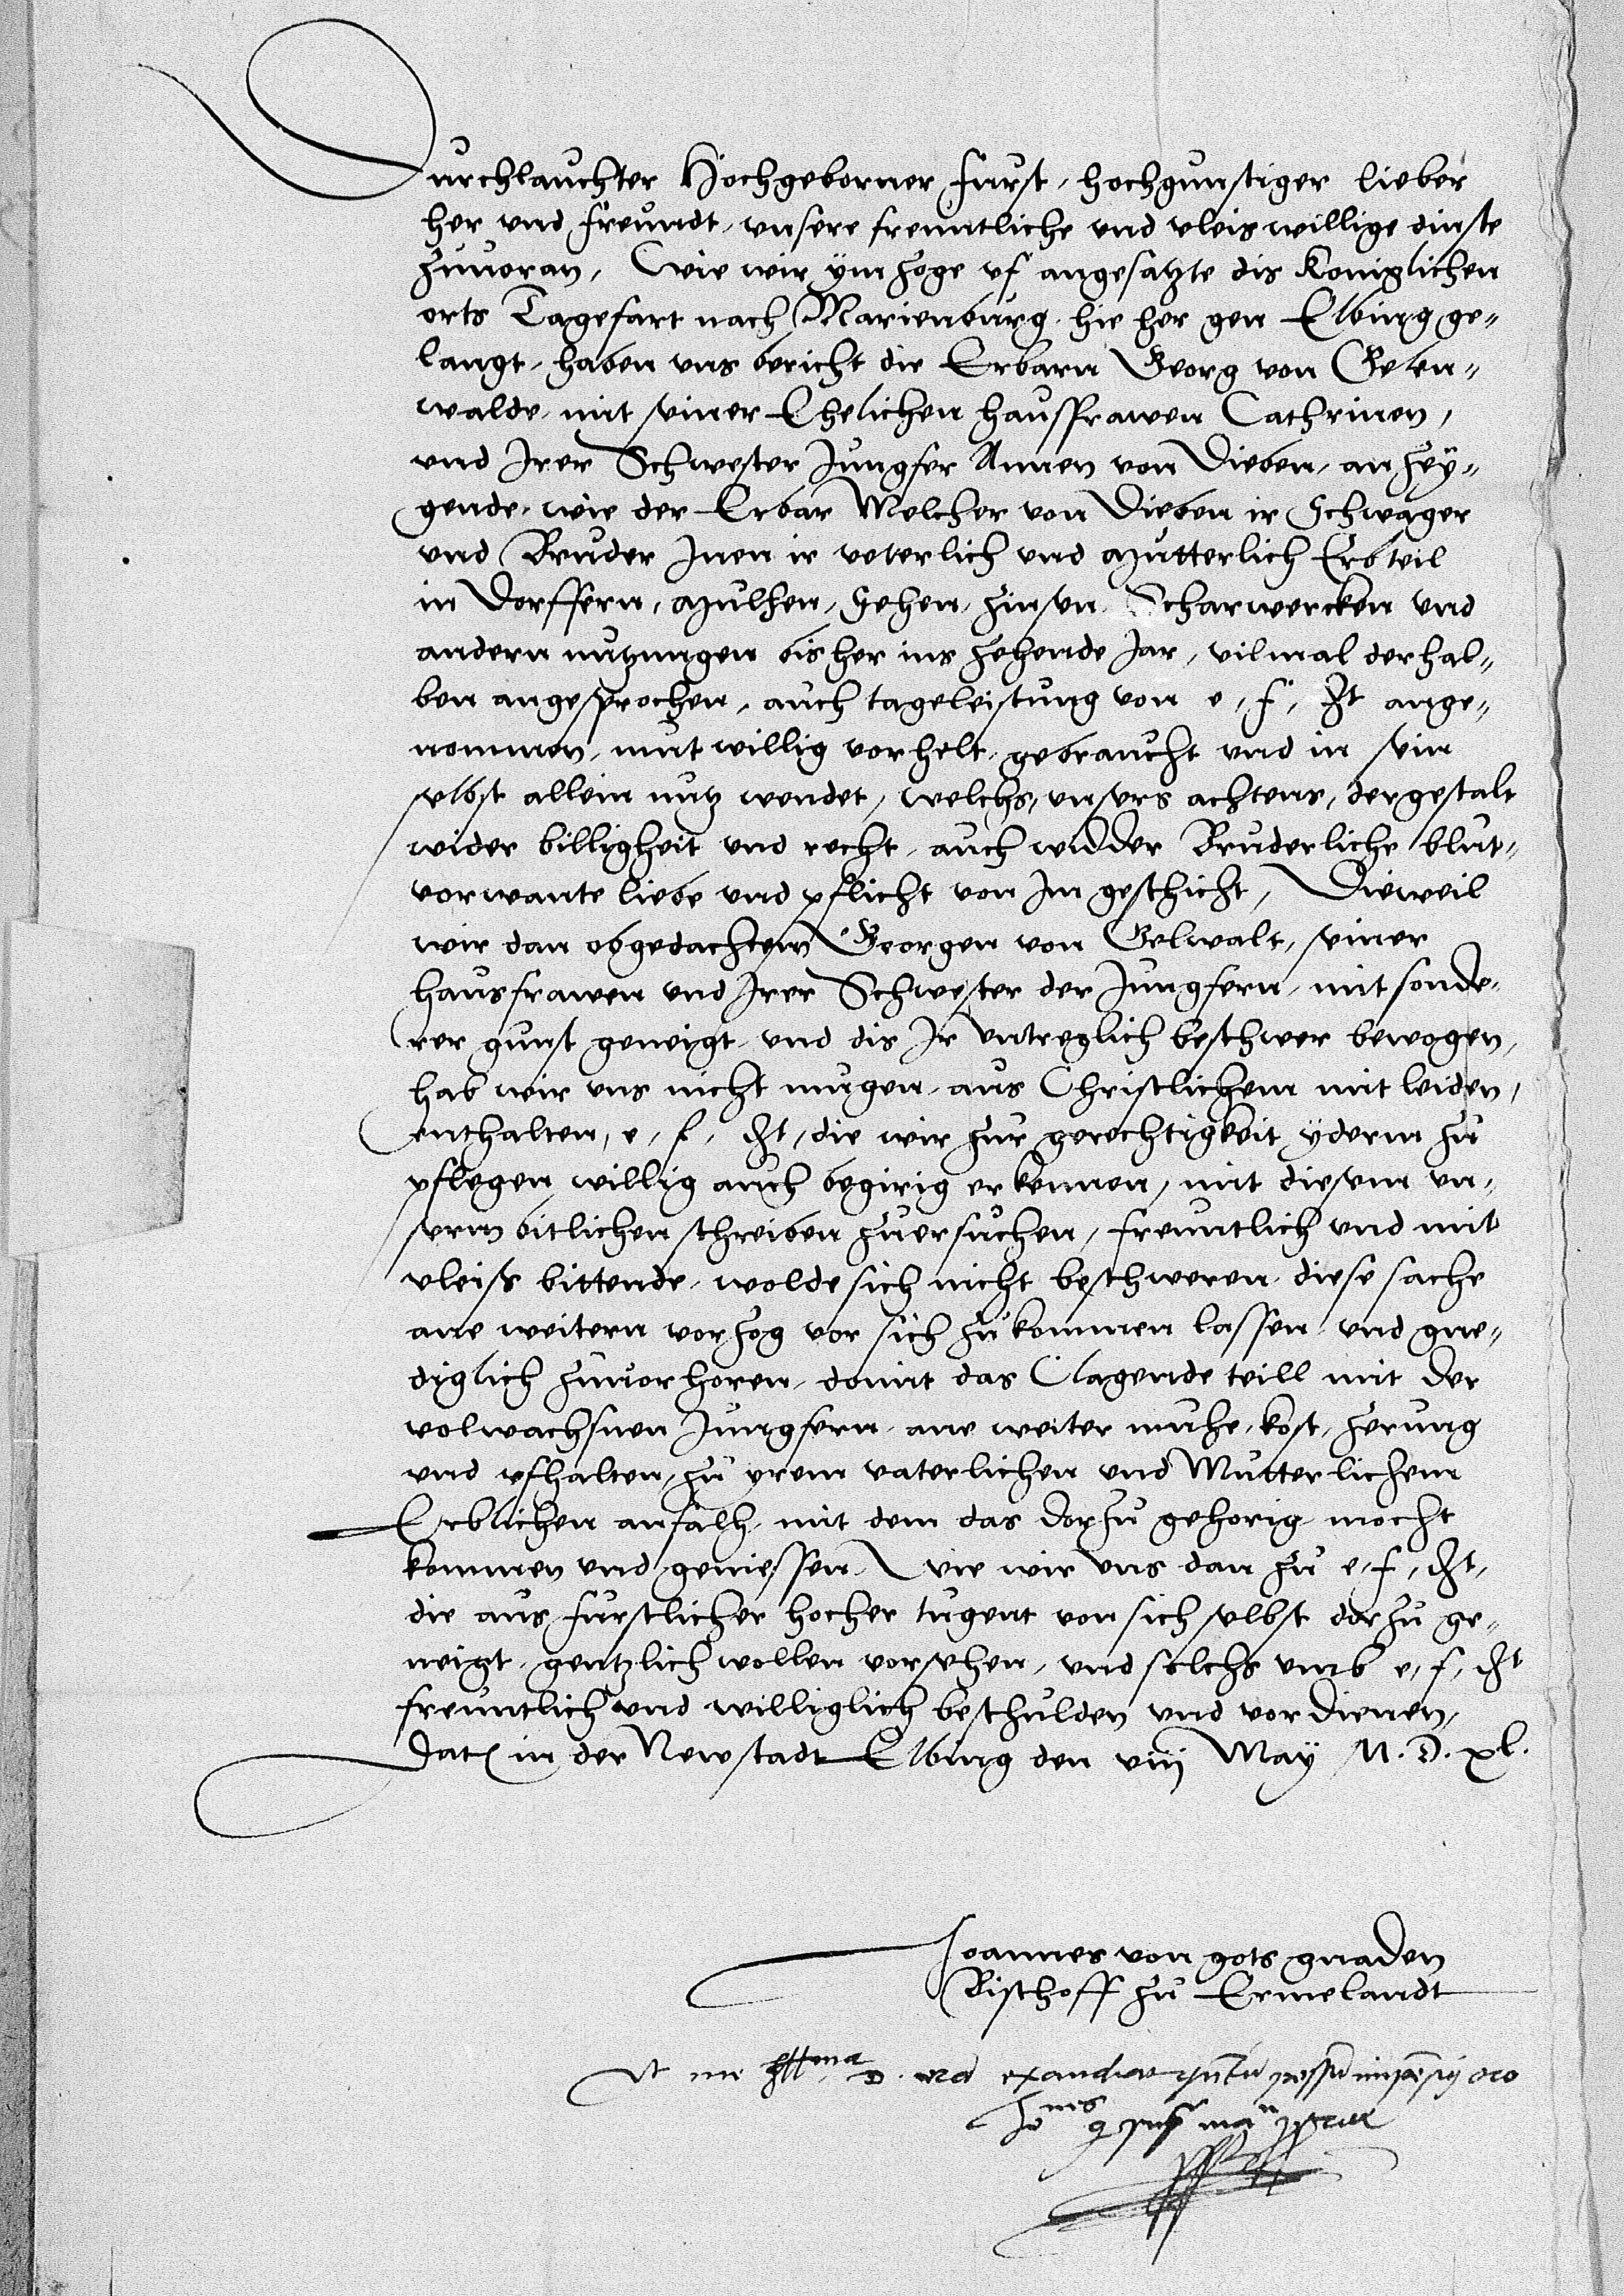 Durchlauchter Hochgeborner furst, hochgunstiger lieber
her vnd freundt, vnsere freuntliche und vleiswillige dinste
zuuoran, Wie wir ym zoge vf angesatzte dis koniglichen
orts Tagefart nach Marienburg hie her gen Elbing ge-
langt, haben vns bericht die Erbarn Georg von Gelen-
walde, mit seiner Ehelichen hausfrawen Cathrinen,
vnd Irer Schwester Jungfer Annen von Dieben, anzey-
gende, wie der Erbar Melcher von Dieben ir Schwager
vnd Bruder Inen ir veterlich vnd mutterlich Erbteil
in Dorffern, mulhen, Sehen, zinsen, Scharwercken vnd
andern nutzungen bis her ins zehende Jar, vilmal derhal-
ben angesprochen, auch tageleistung von e, f, Dt ange-
nommen, mutwillig vorhelt, gebraucht vnd in sein
selbst allein nutz wendet, welchs, vnsers achtens, dergestalt
wider billigheit vnd recht, auch widder Bruderliche blut-
vorwante liebe vnd pflicht von Im geschicht, Dieweil
wir dan obgedachtem Georgen von Gelwalt, seiner
hausfrawen vnd Irer Schwester der Jungfern, mit sonde-
rer gunst geneigt, vnd dis Ir vntreglich beschwer bewogen,
hab wir vns nicht mugen, aus Christlichem mitleiden,
enthalten, e, f, Dt, die wir zur gerechtigkeit yderm zu
pflegen willig auch begirig erkennen, mit diesem vn-
serm bitlichen schreiben zuersuchen, freuntlich vnd mit
vleiss bittende, wolde sich nicht beschweren, diese sache
ane weitern vorzog vor sich zukommen lassen, vnd gne-
diglich zuuorhoren, domit das Clagende teill mit der
volwachsnen Jungfern, ane weiter muhe, kost, zerung
vnd vfhalten, zu yrem vaterlichen vnd Mutterlichem
Erblichen anfalh, mit dem das dorzu gehorig mocht
kommen vnd geniessen, Wie wir vns dan zu e, f, Dt,
die aus furstlicher hocher tugent von sich selbst dorzu ge-
neigt, gentzlich wollen vorsehen, vnd solchs vmb e, f, Dt
freuntlich vnd williglich beschulden vnd vordienen,
Dat in der Newstadt Elbing den viij May M. D. xl.
Joannes von gots gnaden
Bischoff zu Ermelandt
Vt me D. exaudiat oro